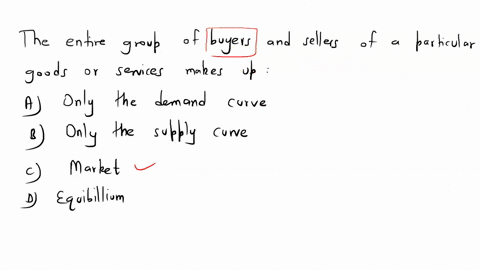 The entire group of buyers and sellers of a particular
goods or services makes up :
A) Only the demand curve
B) Only the supply curve
C) Market
D) Equibillium